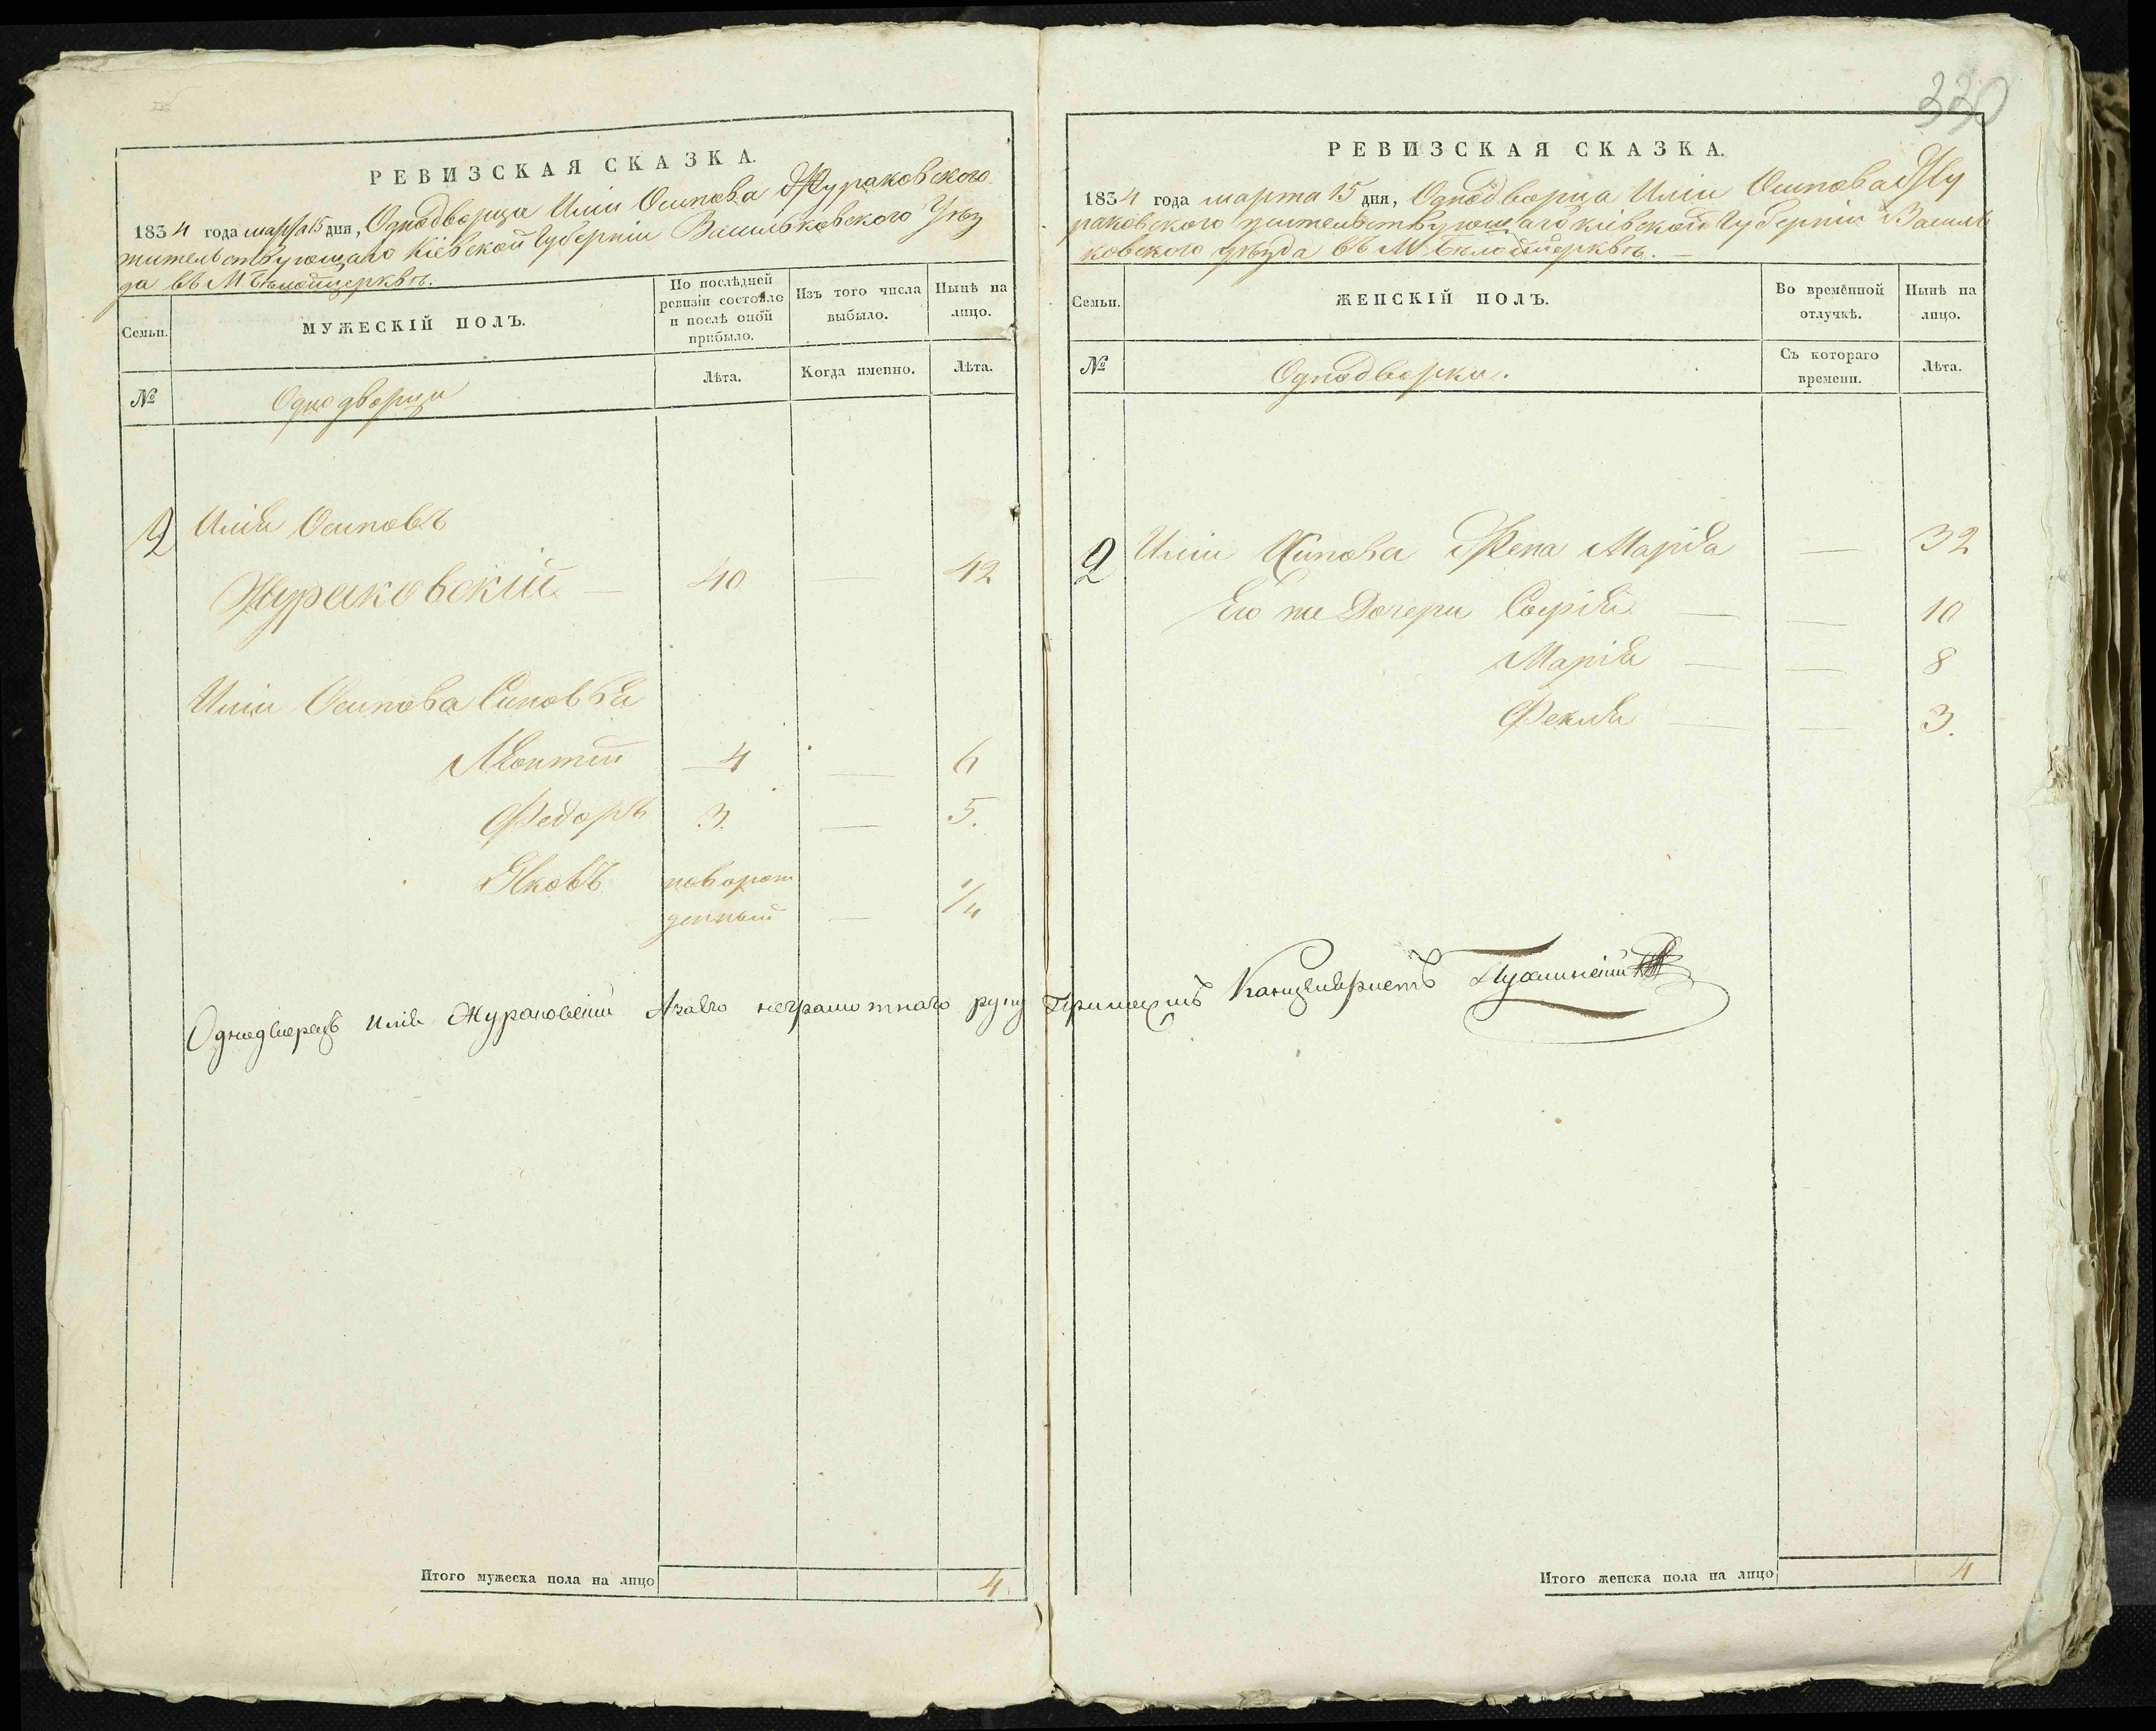 330
РЕВИЗСКАЯ СКАЗКА.
1834 года марта 15 дня, Однодворца Иліи Осипова Жураковского
жительствующаго Кіевской Губерніи Васильковского Уѣз
да въ М Бѣлойцерквѣ.
Семьи.
МУЖЕСКІЙ ПОЛЪ.
По послѣдней
ревизіи состояло
и послѣ оной
прибыло.
Изъ того числа
выбыло.
Нынѣ на
лицо.
№
Однодворци
Лѣта.
Когда именно.
Лѣта.
2 Илія Осиповъ
Жураковскій — 40 — 42
Иліи Осипова Синовья
Леонтій — 4 — 6
Федоръ 3. — 5.
Яковъ новорож
денный — 1/4
Итого мужеска пола на лицо 4
РЕВИЗСКАЯ СКАЗКА.
1834 года марта 15 дня, Однодворца Иліи Осипова Жу
раковского жительствующаго Кіевской Губерніи Василь
ковского уѣзда въ М Бѣлойцерквѣ. —
Семьи.
ЖЕНСКІЙ ПОЛЪ.
Во временной
отлучкѣ.
Нынѣ на
лицо.
№
Однодворки.
Съ котораго
времени.
Лѣта.
2 Иліи Осипова Жена Марія — 32
Его же Дочери Софія — — 10
Марія — — 8
Фекла — — 3.
Однодворецъ Илія Жураковскій Азаего неграмотнаго руку Приложилъ Канцеляристъ
Итого женска пола на лицо 4